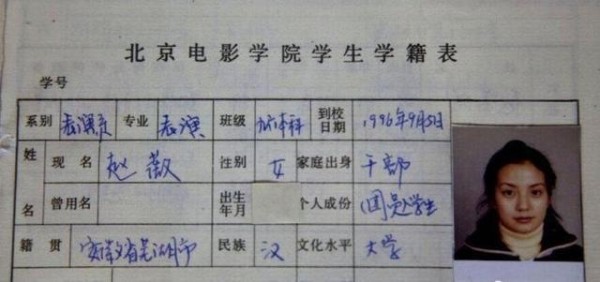 北京电影学院学生学籍表
学号
系别 表演系 专业 表演 班级 96本科 到校日期 1996年9月5日
姓名 现名 赵薇 性别 女 家庭出身 干部
曾用名 出生年月 个人成份 (团员)学生
籍贯 安徽省芜湖市 民族 汉 文化水平 大学